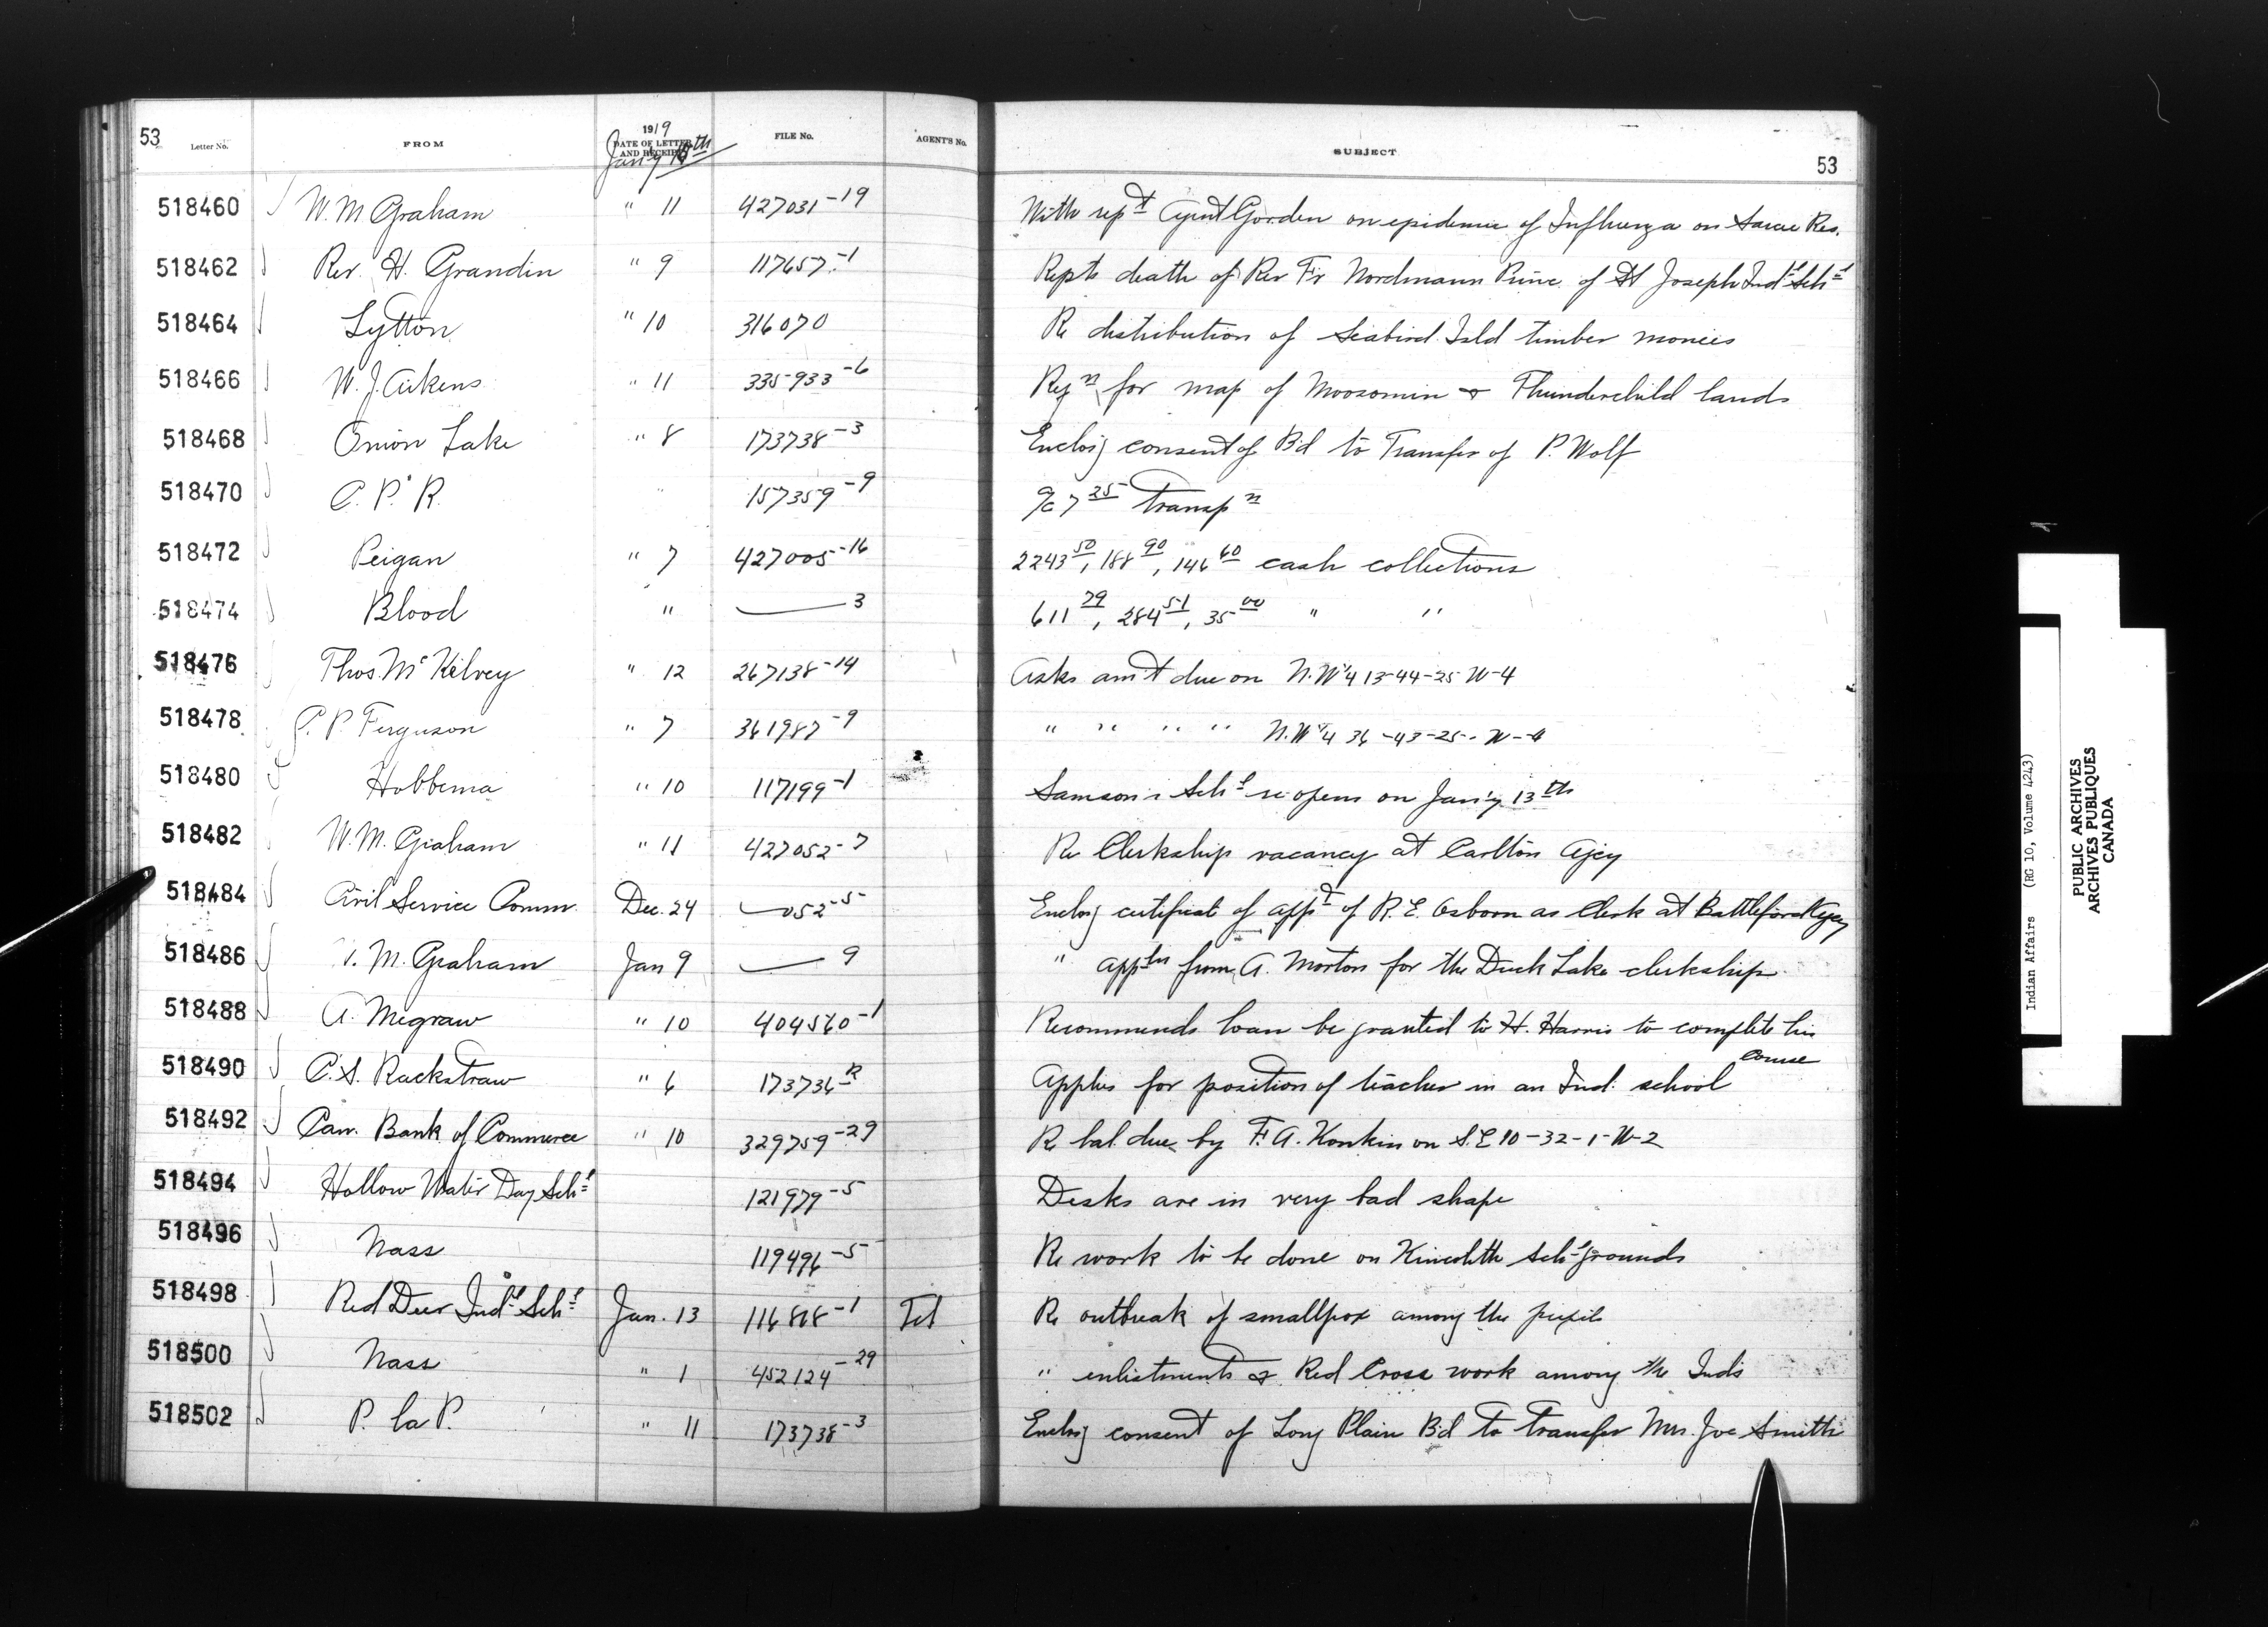 53 Letter No. FROM 1919 DATE OF LETTER AND RECEIPT FILE No. AGENT'S No. SUBJECT 53
Jan'y
518460 W. M Graham " 11 427031-19 With rep't Agent Gorden on epidemic of Influenza on Sarcee Res.
518462 Rev. H. Grandin " 9 117657-1 Repts death of Rev Fr Nordmann Princ. of St Joseph Ind'l Sch'l
518464 Lytton " 10 316070 Re distribution of Seabird Isld timber monies
518466 W. J. Aikens " 11 335933-6 Reqn for map of Moosomin & Thunderchild lands
518468 Onion Lake " 8 173738-3 Enclos'g consent of Bd to Transfer of P. Wolf
518470 C. P. R. " 157359-9 a/c 7 25 transpn
518472 Peigan " 7 427005-16 2243 50, 188 90, 146 60 cash collections
518474 Blood " — 3 611 79, 284 51, 35 00 " "
518476 Thos. McKelvey " 12 267138-14 Asks am't due on N.W¼ 13-44-25 W-4
518478 P. P. Ferguson " 7 361987-9 " " " " N.W¼ 36-43-25-W-4
518480 Hobbema " 10 117199-1 Samson's Sch'l re opens on Jan'y 13th
518482 W. M. Graham " 11 427052-7 Re Clerkship vacancy at Carlton Agcy
518484 Civil Service Comm. Dec. 24 — 052-5 Enclos'g certificate of app't of R. E. Osborn as Clerk at Battleford Agcy
518486 W. M. Graham Jan 9 — 9 " appln from A. Morton for the Duck Lake clerkship
518488 A. Megraw " 10 404560-1 Recommends loan be granted to H. Harris to complete his course
518490 C. S. Rackstraw " 6 173736 R Applies for position of teacher in an Ind. school
518492 Can. Bank of Commerce " 10 329759-29 Re bal. due by F. A. Konkin on S.E 10-32-1-W-2
518494 Hollow Water Day Sch'l 121979-5 Desks are in very bad shape
518496 Nass 119496-5 Re work to be done on Kincolith Sch'l grounds
518498 Red Deer Ind'l Sch'l Jan. 13 116818-1 Tel Re outbreak of smallpox among the pupils
518500 Nass " 1 452124-29 " enlistments & Red Cross work among the Inds
518502 P. la P. " 11 173738-3 Enclos'g consent of Long Plain Bd to transfer Mrs. Joe Smith
Indian Affairs (RG 10, Volume 4243)
PUBLIC ARCHIVES
ARCHIVES PUBLIQUES
CANADA